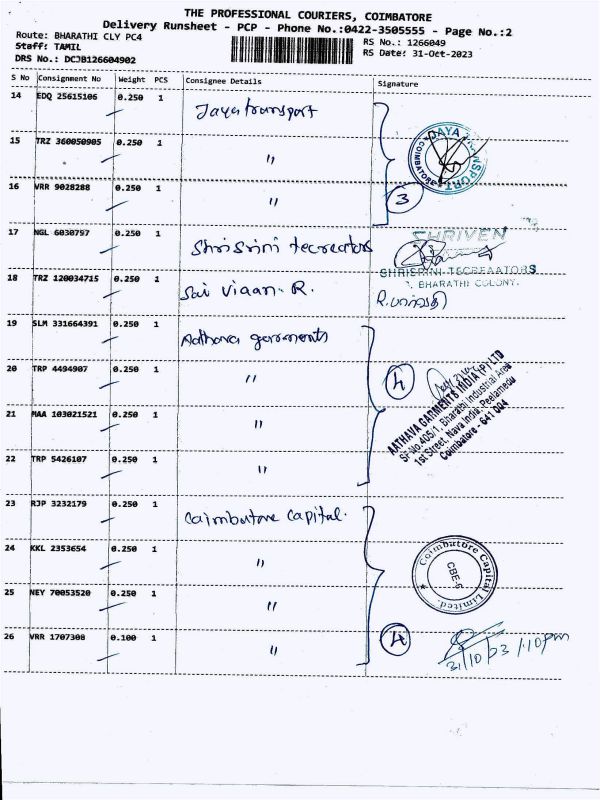 THE PROFESSIONAL COURIERS, COIMBATORE
Delivery Runsheet - PCP - Phone No.:0422-3505555 - Page No.:2
Route: BHARATHI CLY PC4
RS No.: 1266049
Staff: TAMIL
RS Date: 31-Oct-2023
DRS No.: DCJB126604902
S No Consignment No Weight PCS Consignee Details Signature
14 EDQ 25615106 0.250 1 Jaya transport
JAYA TRANSPORT COIMBATORE
15 TRZ 360050905 0.250 1 "
16 VRR 9028288 0.250 1 " 3
17 NGL 6030797 0.250 1 Shrisrini tecreators
SHRIVEN
SHRISRINI TECREAATORS
BHARATHI COLONY.
18 TRZ 120034715 0.250 1 Sai Viaan. R. R. பார்வதி
19 SLM 331664391 0.250 1 Aathava garments
20 TRP 4494907 0.250 1 " 4
AATHAVA GARMENTS INDIA (P) LTD
SF No.405/1, Bharathi Industrial Area
1st Street, Nava India, Peelamedu
Coimbatore - 641 004
21 MAA 103021521 0.250 1 "
22 TRP 5426107 0.250 1 "
23 RJP 3232179 0.250 1 Coimbatore Capital.
24 KKL 2353654 0.250 1 "
Coimbatore Capital Limited
CBE-6
25 NEY 70053520 0.250 1 "
26 VRR 1707308 0.100 1 " 4
31/10/23 1.10pm